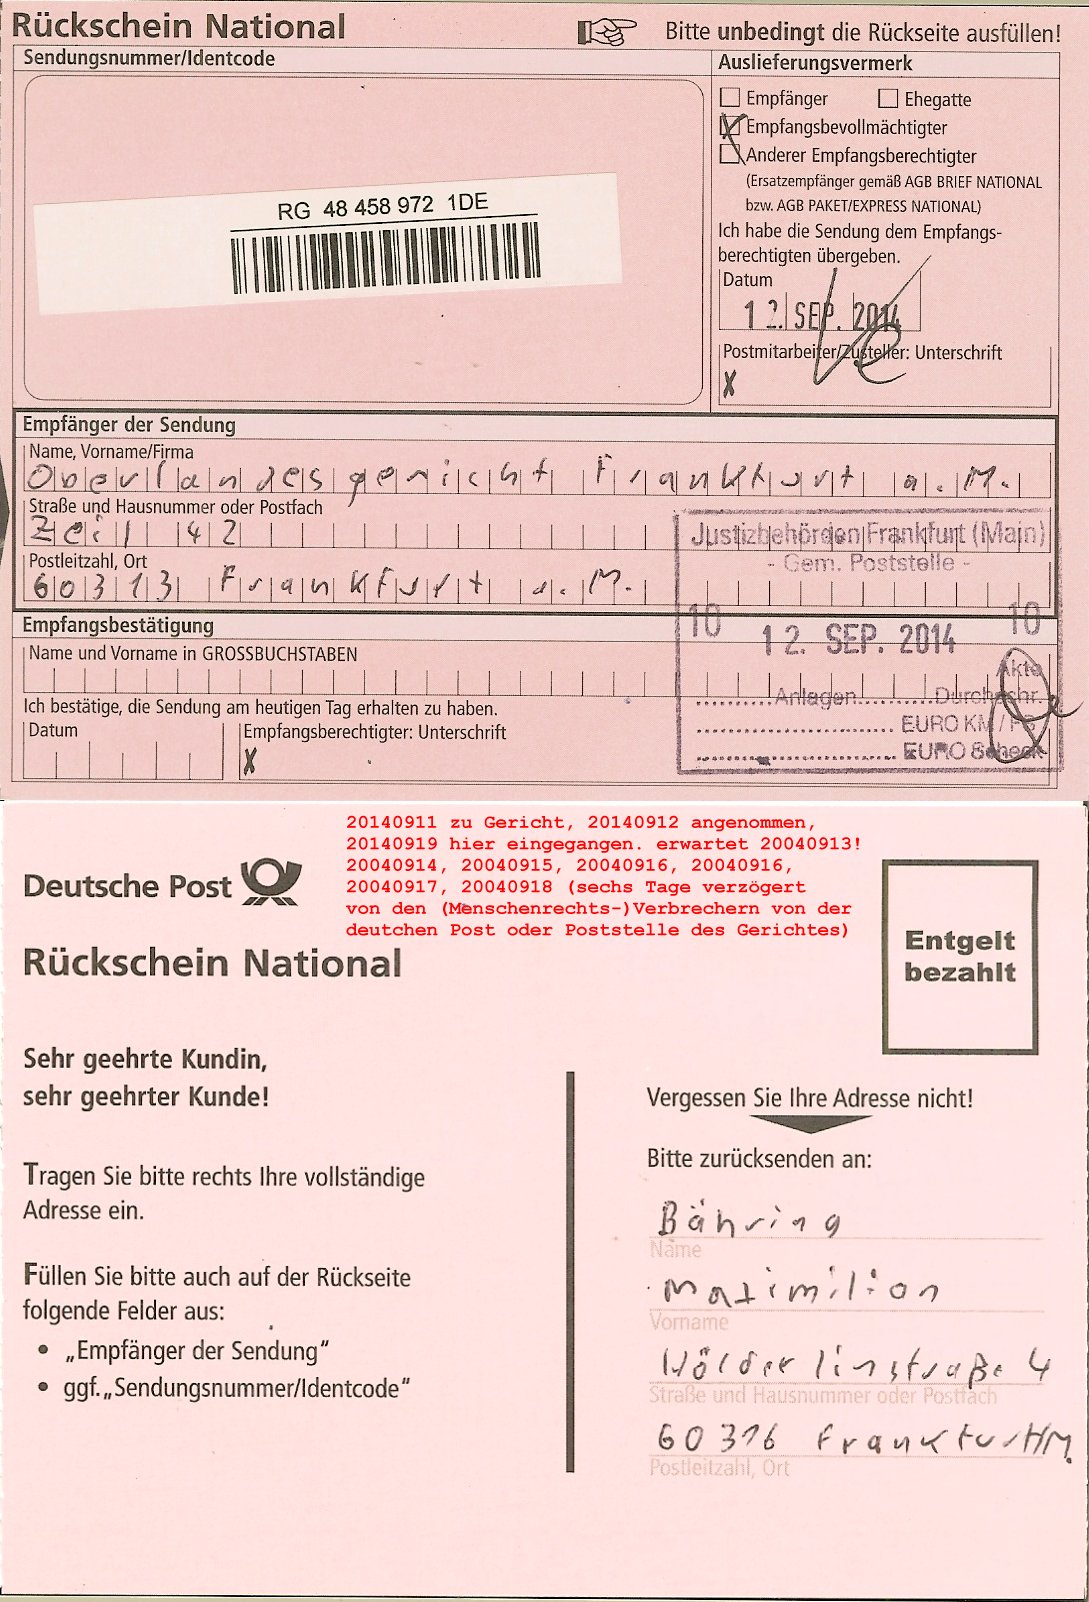 Rückschein National
Bitte unbedingt die Rückseite ausfüllen!
Sendungsnummer/Identcode
RG 48 458 972 1DE
Auslieferungsvermerk
Empfänger
Ehegatte
Empfangsbevollmächtigter
Anderer Empfangsberechtigter
(Ersatzempfänger gemäß AGB BRIEF NATIONAL
bzw. AGB PAKET/EXPRESS NATIONAL)
Ich habe die Sendung dem Empfangs-
berechtigten übergeben.
Datum
12. SEP. 2014
Postmitarbeiter/Zusteller: Unterschrift
X
Empfänger der Sendung
Name, Vorname/Firma
Oberlandesgericht Frankfurt a.M.
Straße und Hausnummer oder Postfach
Zeil 42
Postleitzahl, Ort
60313 Frankfurt a.M.
Justizbehörden Frankfurt (Main)
- Gem. Poststelle -
10 12. SEP. 2014 10
Akte
..........Anlagen..........Durchschr.
EURO KM / FS
EURO Scheck
Empfangsbestätigung
Name und Vorname in GROSSBUCHSTABEN
Ich bestätige, die Sendung am heutigen Tag erhalten zu haben.
Datum
Empfangsberechtigter: Unterschrift
X
20140911 zu Gericht, 20140912 angenommen,
20140919 hier eingegangen. erwartet 20040913!
20040914, 20040915, 20040916, 20040916,
20040917, 20040918 (sechs Tage verzögert
von den (Menschenrechts-)Verbrechern von der
deutchen Post oder Poststelle des Gerichtes)
Deutsche Post
Rückschein National
Entgelt
bezahlt
Sehr geehrte Kundin,
sehr geehrter Kunde!
Tragen Sie bitte rechts Ihre vollständige
Adresse ein.
Füllen Sie bitte auch auf der Rückseite
folgende Felder aus:
• „Empfänger der Sendung"
• ggf. „Sendungsnummer/Identcode"
Vergessen Sie Ihre Adresse nicht!
Bitte zurücksenden an:
Bähring
Name
Maximilian
Vorname
Hölderlinstraße 4
Straße und Hausnummer oder Postfach
60316 Frankfurt/M.
Postleitzahl, Ort